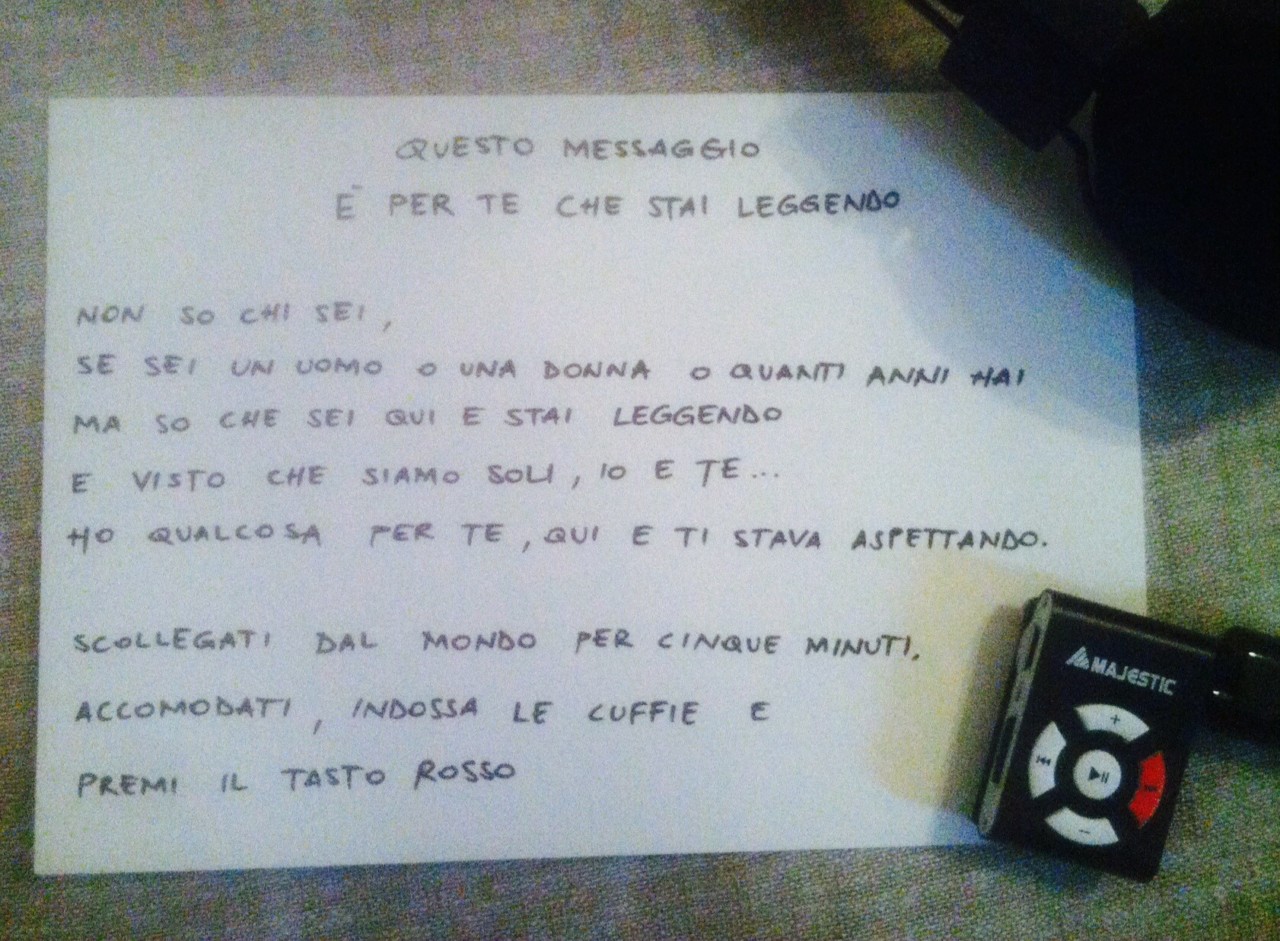 QUESTO MESSAGGIO
È PER TE CHE STAI LEGGENDO
NON SO CHI SEI,
SE SEI UN UOMO O UNA DONNA O QUANTI ANNI HAI
MA SO CHE SEI QUI E STAI LEGGENDO
E VISTO CHE SIAMO SOLI, IO E TE...
HO QUALCOSA PER TE, QUI E TI STAVA ASPETTANDO.
SCOLLEGATI DAL MONDO PER CINQUE MINUTI.
ACCOMODATI, INDOSSA LE CUFFIE E
PREMI IL TASTO ROSSO
MAJESTIC